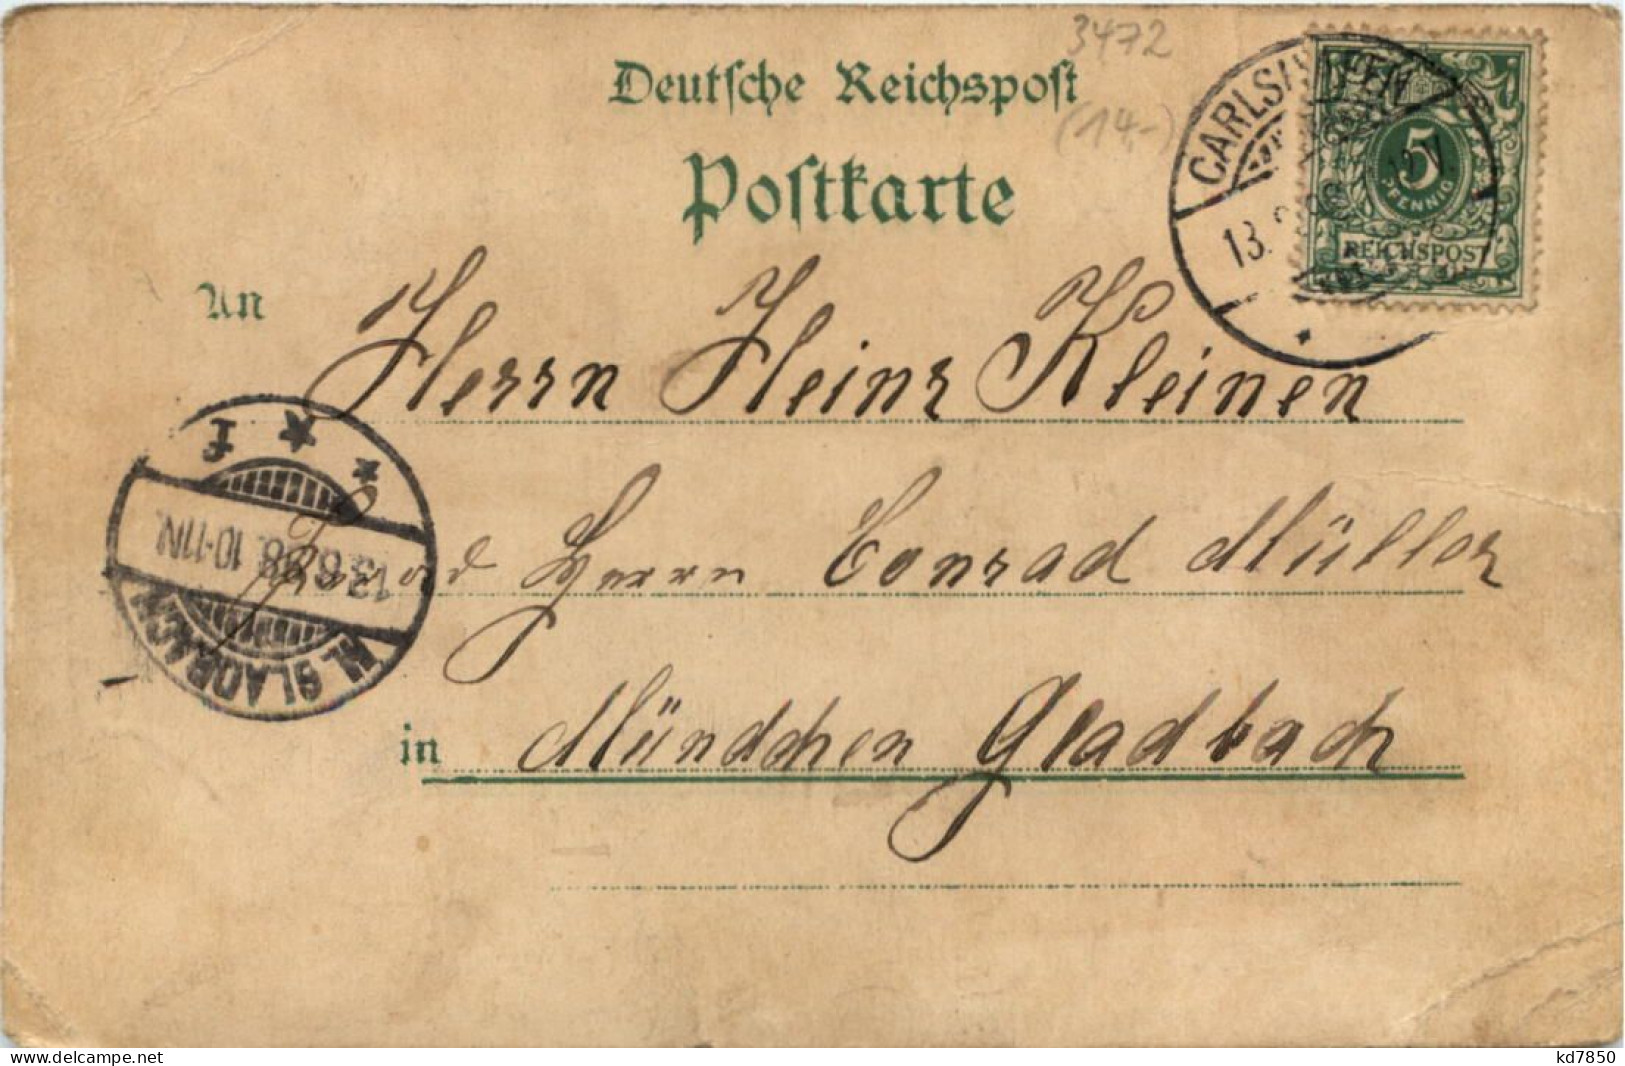 3472
(14,-)
Deutsche Reichspost
Postkarte
CARLSHAFEN
13.
5
PFENNIG
REICHSPOST
An
Herrn Heinz Kleinen
Herrn Conrad Müller
in Mündchen Gladbach
M. GLADBACH
13.6.98. 10-11N.
www.delcampe.net
kd7850